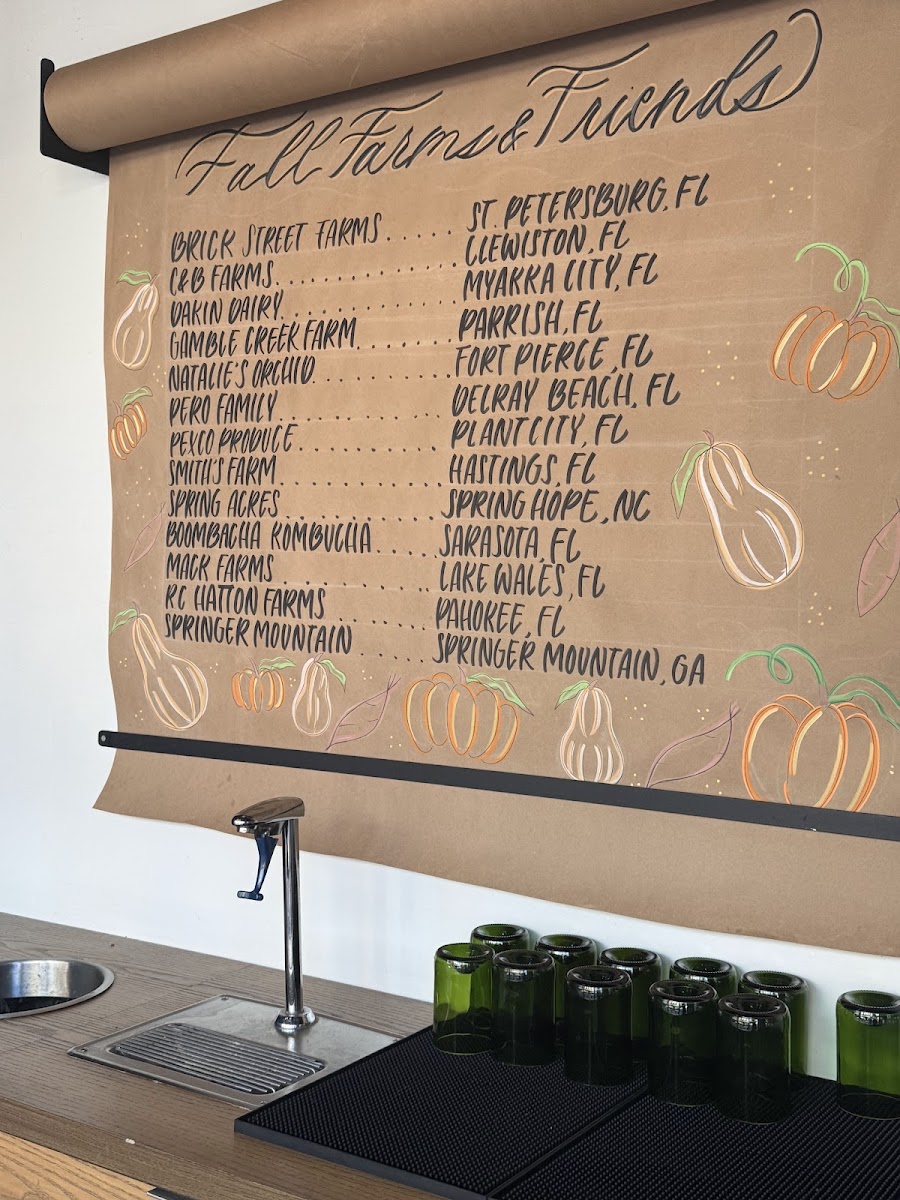 Fall Farms & Friends
BRICK STREET FARMS ..... ST. PETERSBURG, FL
C&B FARMS ............. CLEWISTON, FL
DAKIN DAIRY ............ MYAKKA CITY, FL
GAMBLE CREEK FARM ....... PARRISH, FL
NATALIE'S ORCHID .......... FORT PIERCE, FL
PERO FAMILY ............ DELRAY BEACH, FL
PEXCO PRODUCE .......... PLANT CITY, FL
SMITH'S FARM ............ HASTINGS, FL
SPRING ACRES ............ SPRING HOPE, NC
BOOMBACHA KOMBUCHA ..... SARASOTA, FL
MACK FARMS ............ LAKE WALES, FL
RC HATTON FARMS ........ PAHOKEE, FL
SPRINGER MOUNTAIN ..... SPRINGER MOUNTAIN, GA